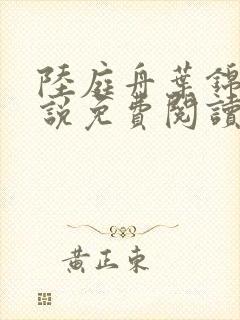 陸庭舟葉錦
說免費閱讀
黃正東